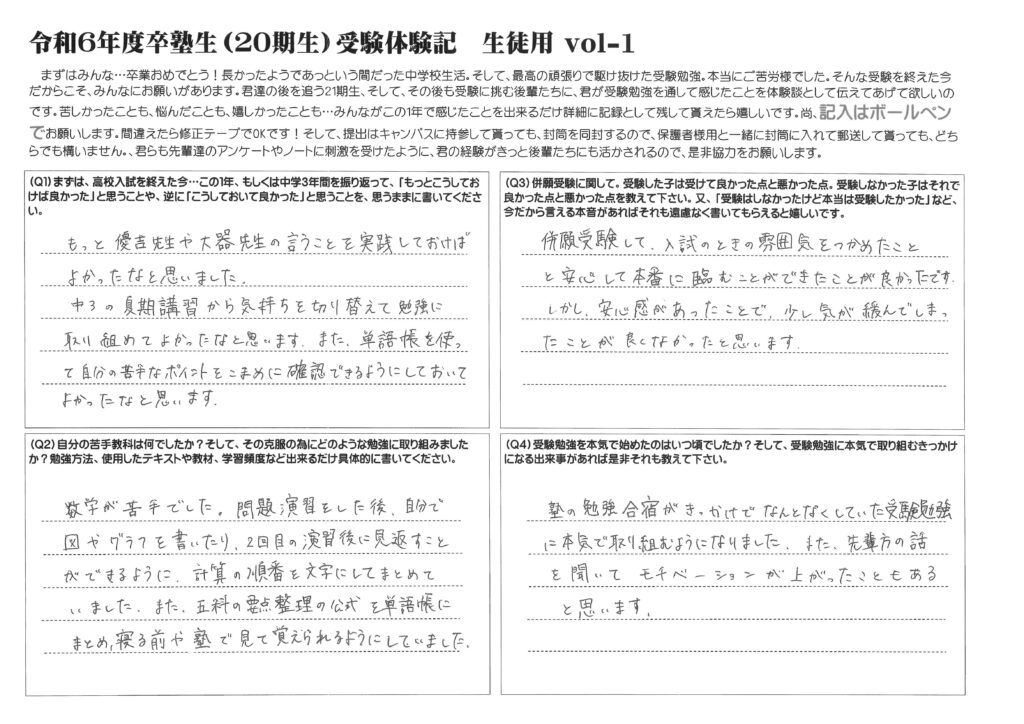 令和6年度卒塾生（20期生）受験体験記　生徒用 vol-1
まずはみんな…卒業おめでとう！長かったようであっという間だった中学校生活。そして、最高の頑張りで駆け抜けた受験勉強。本当にご苦労様でした。そんな受験を終えた今
だからこそ、みんなにお願いがあります。君達の後を追う21期生、そして、その後も受験に挑む後輩たちに、君が受験勉強を通して感じたことを体験談として伝えてあげて欲しいの
です。苦しかったことも、悩んだことも、嬉しかったことも…みんながこの1年で感じたことを出来るだけ詳細に記録として残して貰えたら嬉しいです。尚、記入はボールペン
でお願いします。間違えたら修正テープでOKです！そして、提出はキャンパスに持参して貰っても、封筒を同封するので、保護者様用と一緒に封筒に入れて郵送して貰っても、どち
らでも構いません。、君らも先輩達のアンケートやノートに刺激を受けたように、君の経験がきっと後輩たちにも活かされるので、是非協力をお願いします。
（Q1）まずは、高校入試を終えた今…この1年、もしくは中学3年間を振り返って、「もっとこうしてお
けば良かった」と思うことや、逆に「こうしておいて良かった」と思うことを、思うままに書いてくださ
い。
もっと優吉先生や大器先生の言うことを実践しておけば
よかったなと思いました。
中3の夏期講習から気持ちを切り替えて勉強に
取り組めてよかったなと思います。また、単語帳を使っ
て自分の苦手なポイントをこまめに確認できるようにしておいて
よかったなと思います。
（Q2）自分の苦手教科は何でしたか？そして、その克服の為にどのような勉強に取り組みました
か？勉強方法、使用したテキストや教材、学習頻度など出来るだけ具体的に書いてください。
数学が苦手でした。問題演習をした後、自分で
図やグラフを書いたり、2回目の演習後に見返すこと
ができるように、計算の順番を文字にしてまとめて
いました。また、五科の要点整理の公式を単語帳に
まとめ、寝る前や塾で見て覚えられるようにしていました。
（Q3）併願受験に関して。受験した子は受けて良かった点と悪かった点。受験しなかった子はそれで
良かった点と悪かった点を教えて下さい。又、「受験はしなかったけど本当は受験したかった」など、
今だから言える本音があればそれも遠慮なく書いてもらえると嬉しいです。
併願受験して、入試のときの雰囲気をつかめたこと
と安心して本番に臨むことができたことが良かったです。
しかし、安心感があったことで、少し気が緩んでしまっ
たことが良くなかったと思います。
（Q4）受験勉強を本気で始めたのはいつ頃でしたか？そして、受験勉強に本気で取り組むきっかけ
になる出来事があれば是非それも教えて下さい。
塾の勉強合宿がきっかけでなんとなくしていた受験勉強
に本気で取り組むようになりました。また、先輩方の話
を聞いてモチベーションが上がったこともある
と思います。